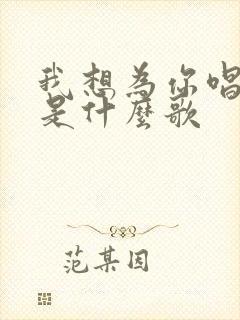 我想為你唱
是什麼歌
范某因